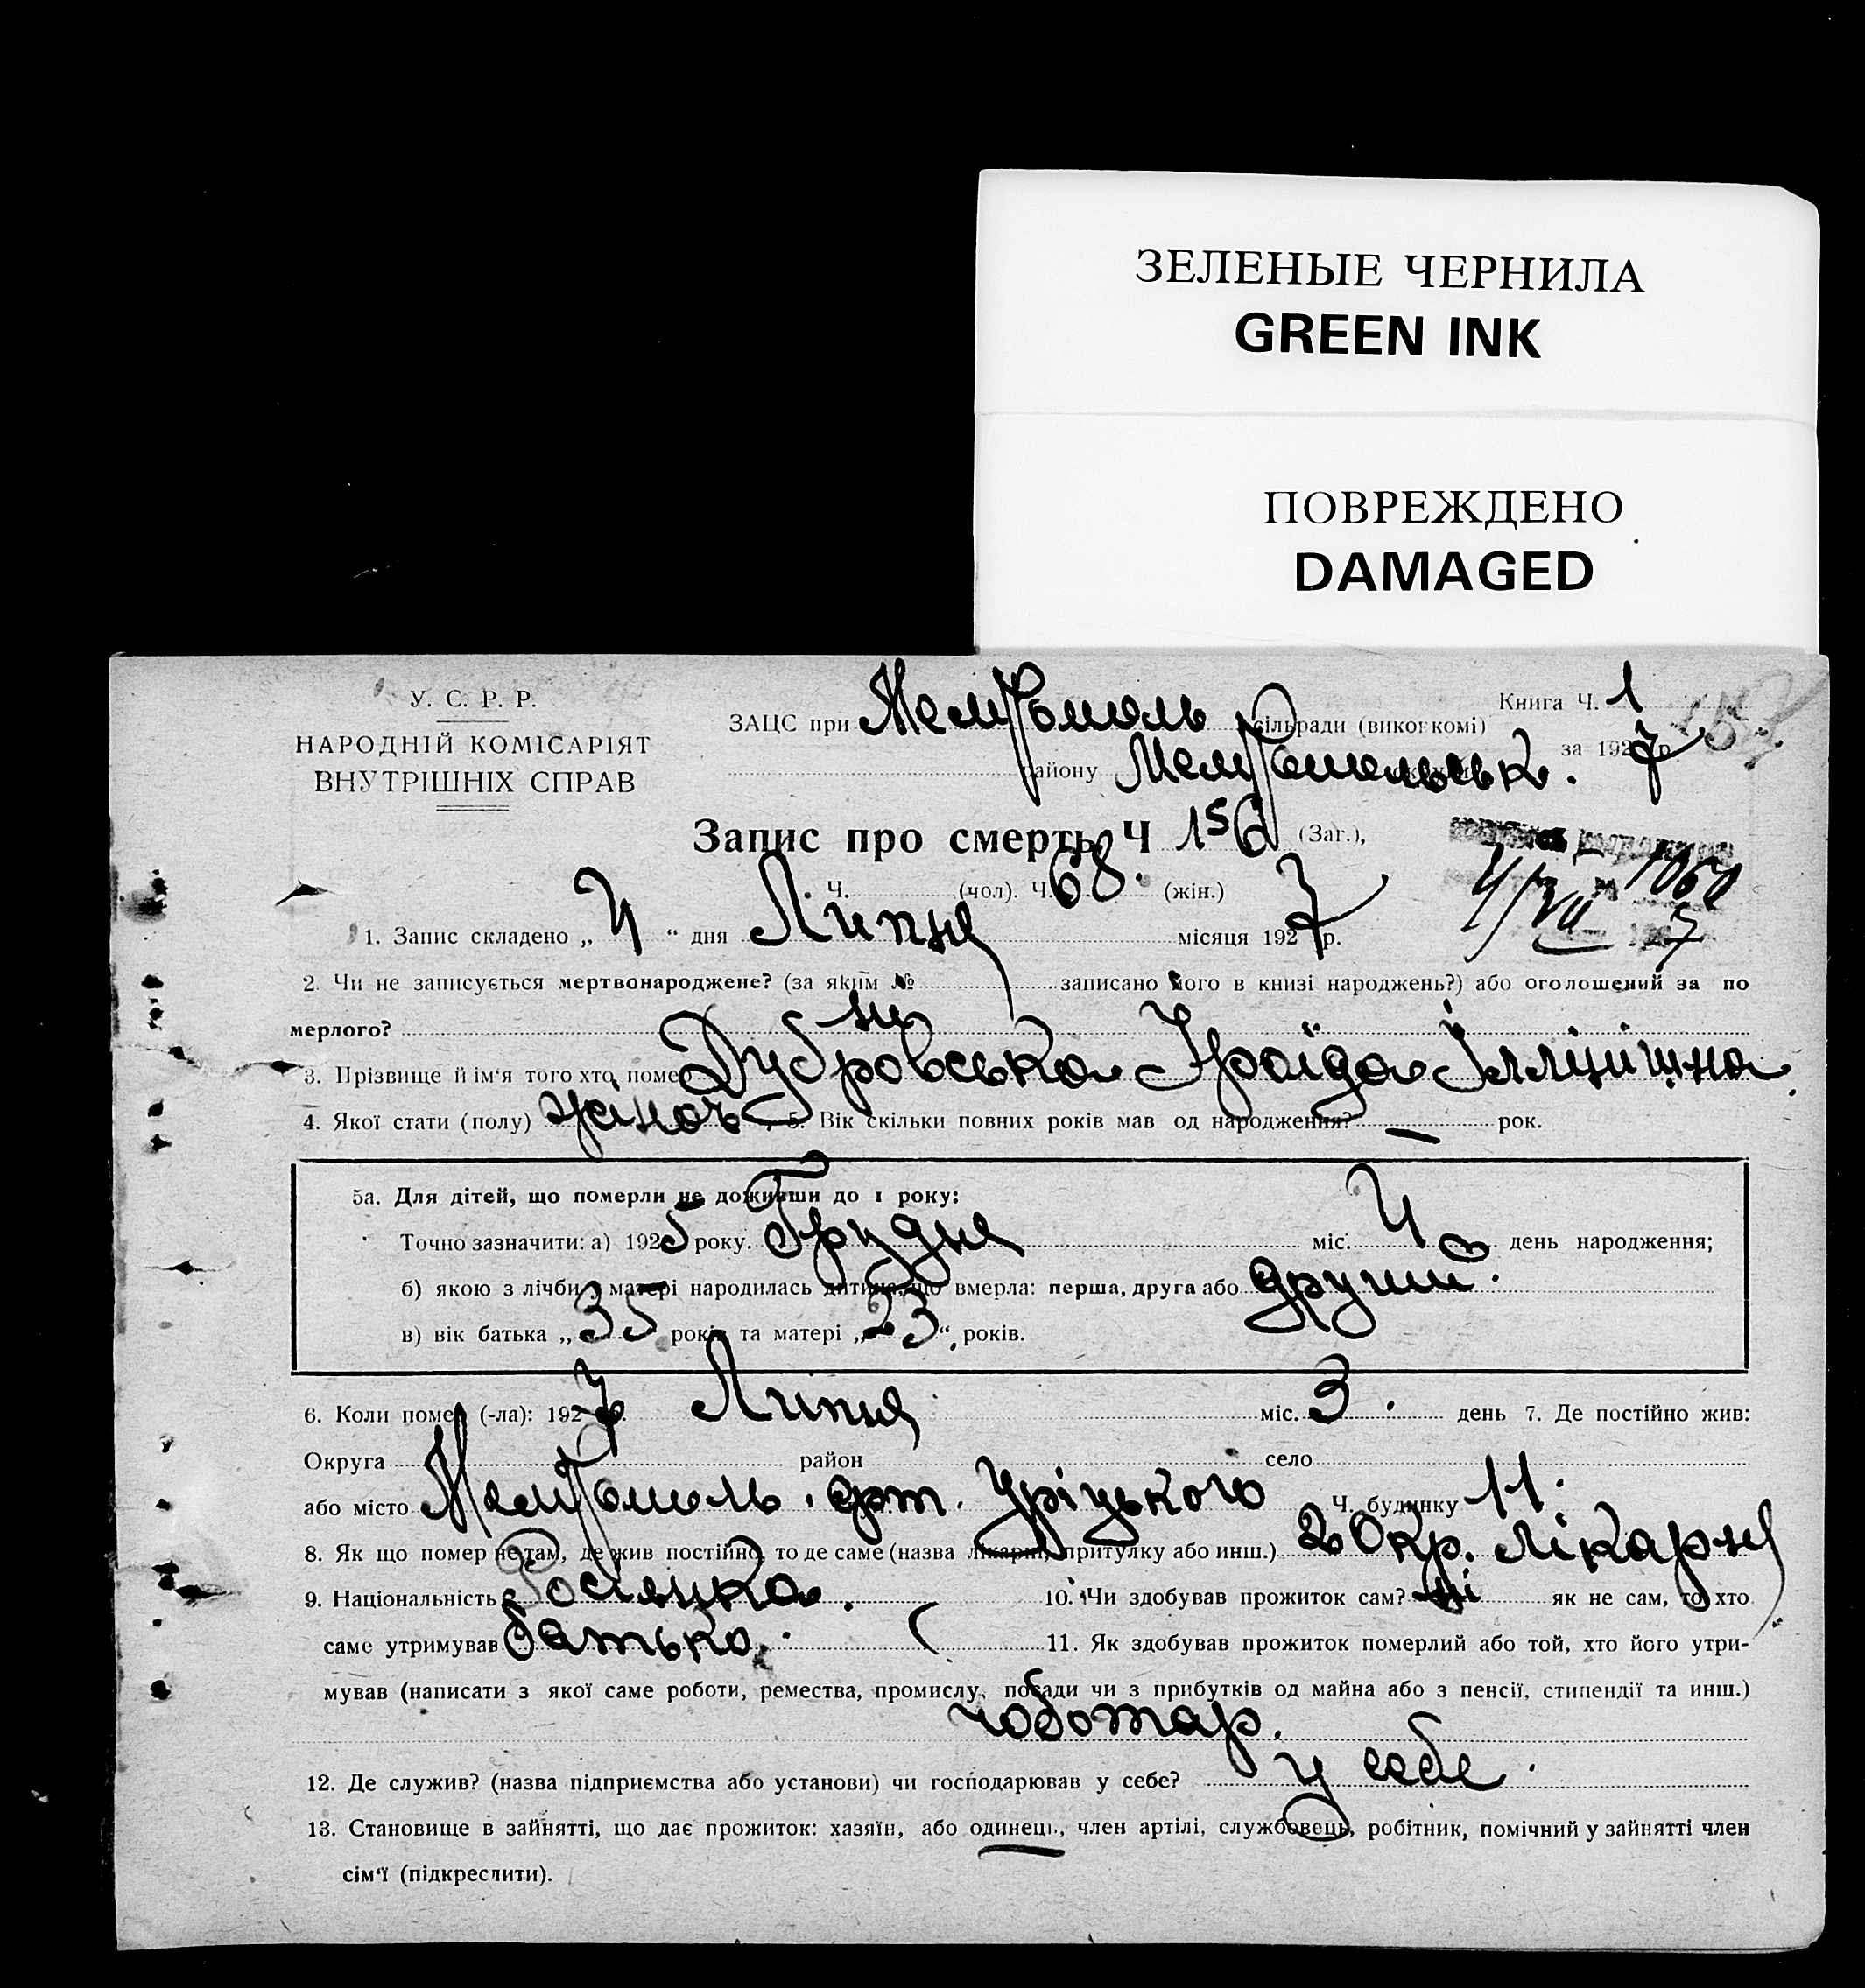 ЗЕЛЕНЫЕ ЧЕРНИЛА
GREEN INK
ПОВРЕЖДЕНО
DAMAGED
У. С. Р. Р.
НАРОДНІЙ КОМІСАРІЯТ
ВНУТРІШНІХ СПРАВ
ЗАЦС при Мелітополь сільради (виконкомі)
Книга Ч. 1
району Мелітопольськ.
за 1927 р.
Запис про смерть Ч 156 (Заг.),
Ч. (чол). Ч. 68. (жін.)
1. Запис складено „ 4 “ дня Липня місяця 1927 р.
2. Чи не записується мертвонароджене? (за яким № записано його в книзі народжень?) або оголошений за по
мерлого?
3. Прізвище й ім‘я того хто помер Дубровська Іраїда Іллінішна
4. Якої стати (полу) жіноч 5. Вік скільки повних років мав од народження? — рок.
5а. Для дітей, що померли не доживши до 1 року:
Точно зазначити: а) 1925 року. Грудня міс. 4 день народження;
б) якою з лічби у матері народилась дитина, що вмерла: перша, друга або другий.
в) вік батька „ 35 років та матері „ 23 “, років.
6. Коли помер (-ла): 1927 р. Липня міс. 3. день 7. Де постійно жив:
Округа район село
або місто Мелітополь. Уріцького Ч. будинку 11.
8. Як що помер не там, де жив постійно, то де саме (назва лікарні, притулку або инш.) 2 Окр. лікарня
9. Національність Росіянка. 10. Чи здобував прожиток сам? ні як не сам, то хто
саме утримував батько. 11. Як здобував прожиток померлий або той, хто його утри-
мував (написати з якої саме роботи, ремества, промислу, посади чи з прибутків од майна або з пенсії, стипендії та инш.)
чоботар.
12. Де служив? (назва підприємства або установи) чи господарював у себе? у себе.
13. Становище в зайнятті, що дає прожиток: хазяїн, або одинець, член артілі, службовець, робітник, помічний у зайнятті член
сім‘ї (підкреслити).